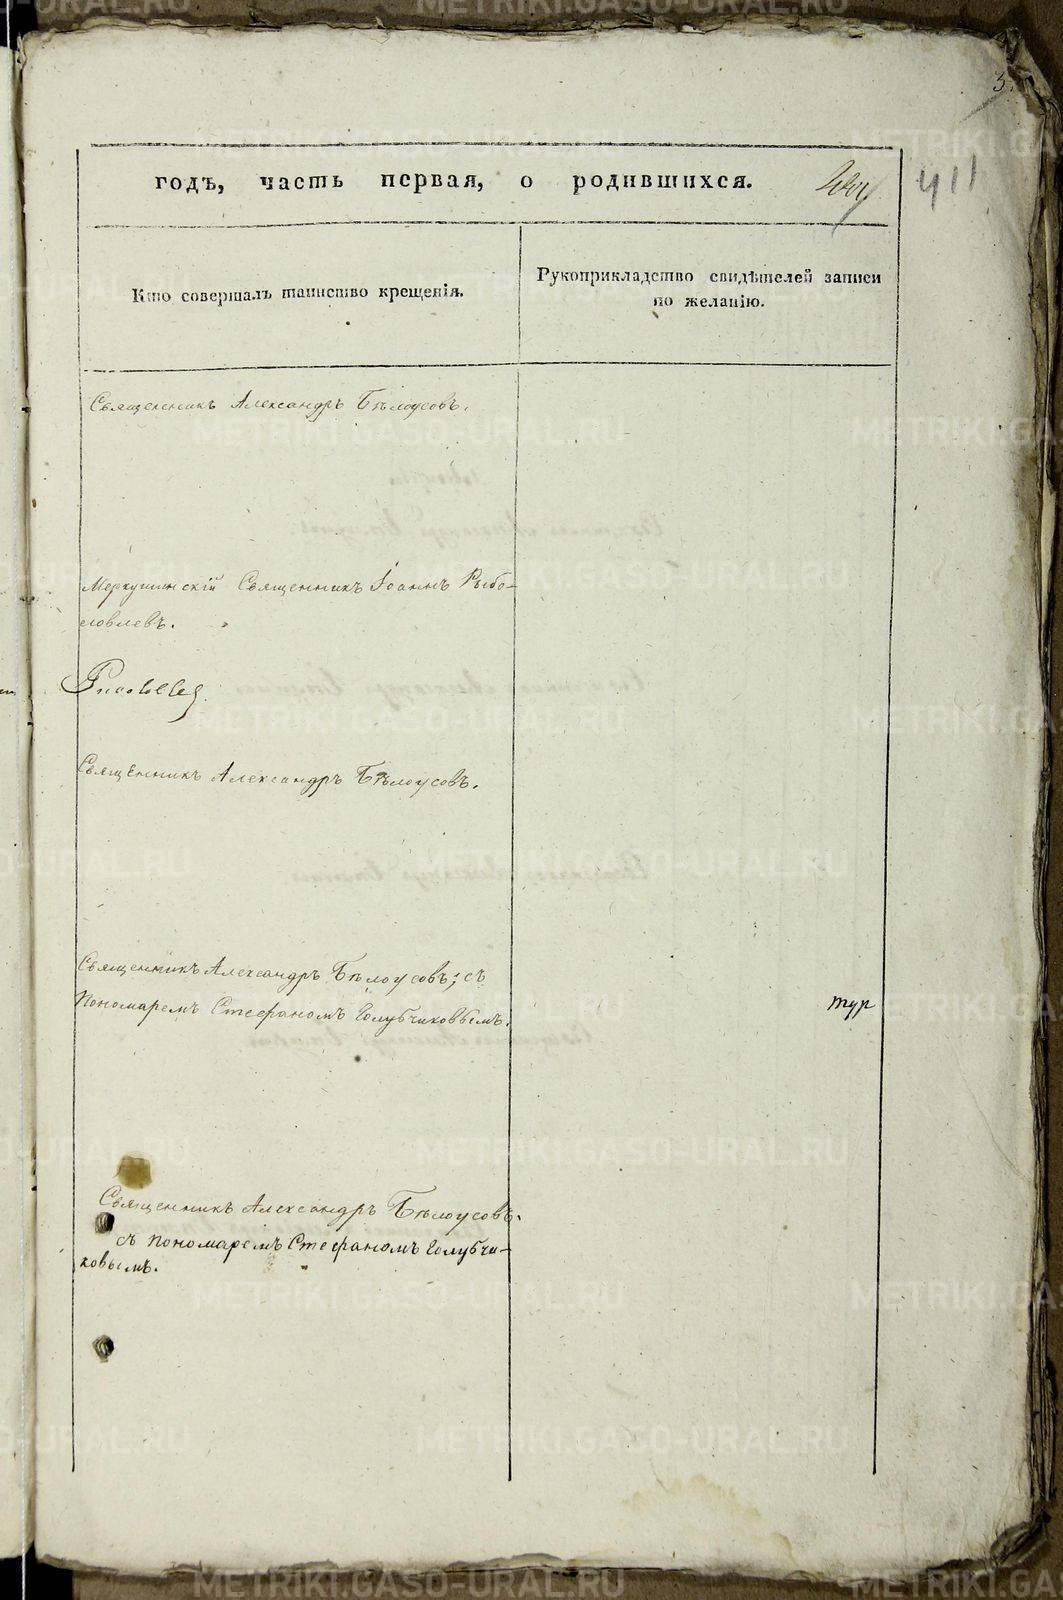 годъ, часть первая, о родившихся.
411
Кто совершалъ таинство крещенія.
Рукоприкладство свидѣтелей записи
по желанію.
Священникъ Александръ Бѣлоусовъ.
Меркушинскій Священникъ Іоаннъ Рыбо-
ловлевъ.
Священникъ Александръ Бѣлоусовъ.
Священникъ Александръ Бѣлоусовъ; съ
Пономаремъ Стефаномъ Голубчиковымъ.
тур
Священникъ Александръ Бѣлоусовъ.
съ Пономаремъ Стефаномъ Голубчи-
ковымъ.
METRIKI.GASO-URAL.RU